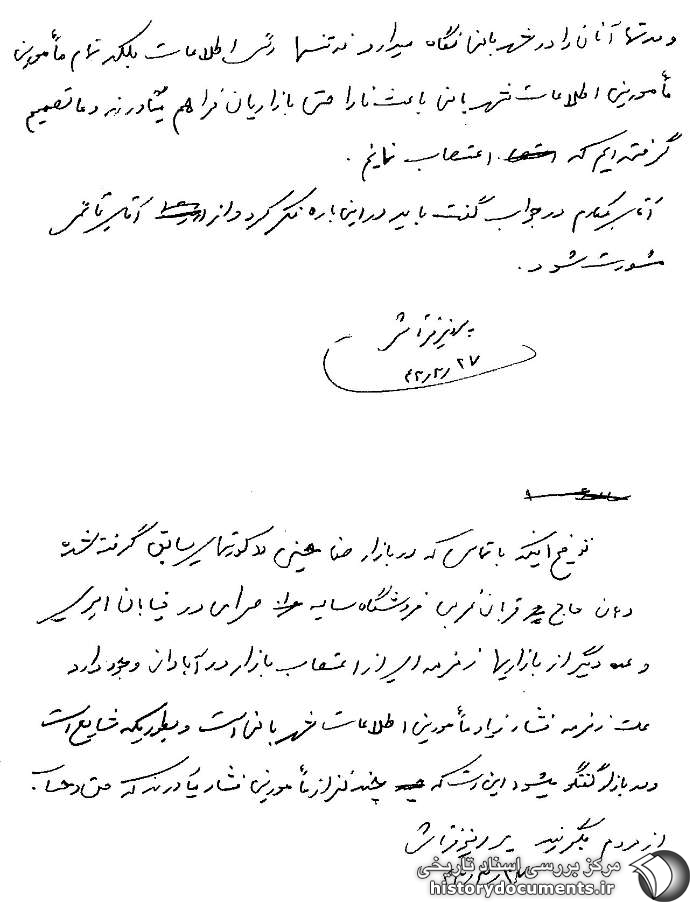 و مدتها آنان را در شهربانی نگاه میدارد نه تنها رئیس اطلاعات بلکه تمام مأمورین
مأمورین اطلاعات شهربانی باعث ناراحتی بازاریان فراهم میآورند و ما تصمیم
گرفته ایم که اعتصاب نمایم .
آقای مکارم در جواب گفت باید در این باره فکر کرد و از آقای قائمی
مشورت شود .
۲۷
توضیح اینکه با تماسی که در بازار صفا گرفته شده
حاج قربان فروشگاه سایه در خیابان امیری
و عده دیگر از بازاریها زمزمه ای از اعتصاب بازار در آبادان وجود دارد
علت زمزمه فشار زیاد مأمورین اطلاعات شهربانی است و بطوریکه شایع است
و در بازار گفتگو میشود این است که چند نفر از مأمورین فشار میآورند که حق و حساب
از مردم بگیرند
مرکز بررسی اسناد تاریخی
historydocuments.ir